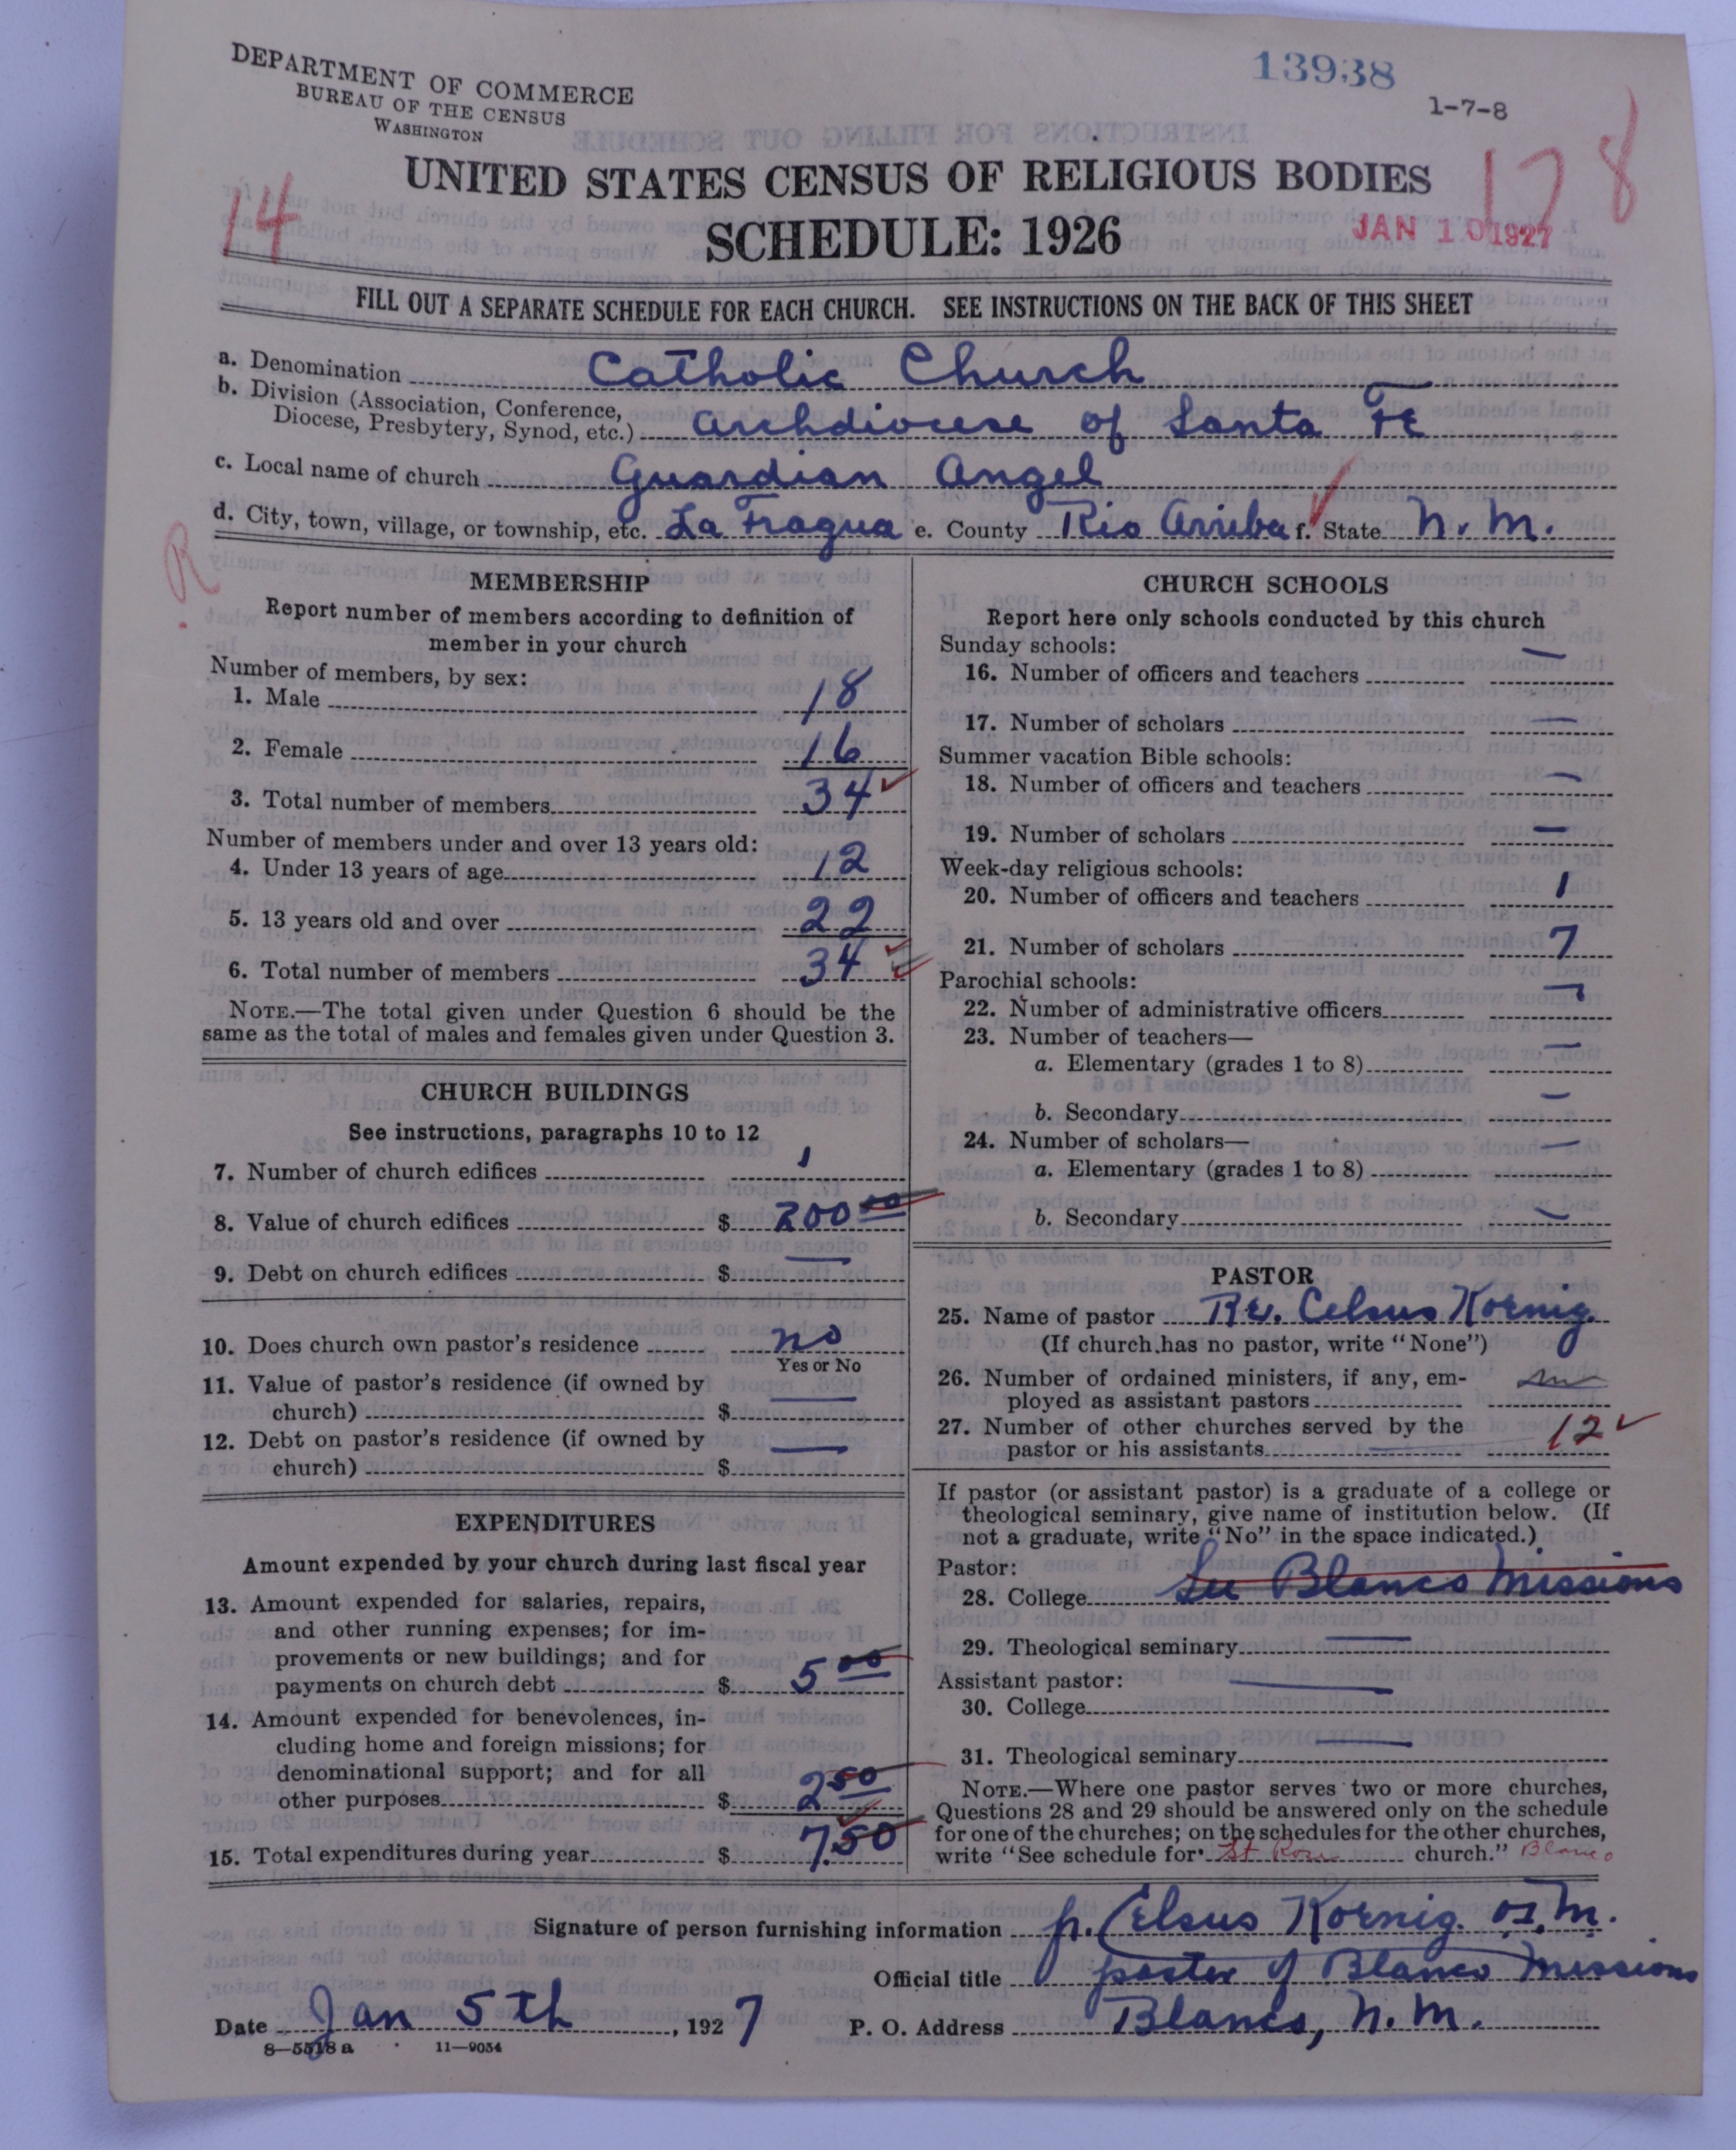 DEPARTMENT OF COMMERCE
BUREAU OF THE CENSUS
WASHINGTON
13938
1-7-8
UNITED STATES CENSUS OF RELIGIOUS BODIES
14
178
SCHEDULE: 1926
JAN 10 1927
FILL OUT A SEPARATE SCHEDULE FOR EACH CHURCH. SEE INSTRUCTIONS ON THE BACK OF THIS SHEET
a. Denomination Catholic Church
b. Division (Association, Conference,
Diocese, Presbytery, Synod, etc.) Archdiocese of Santa Fe
c. Local name of church Guardian Angel
d. City, town, village, or township, etc. La Fragua e. County Rio Arriba f. State N. M.
R
MEMBERSHIP
Report number of members according to definition of
member in your church
Number of members, by sex:
1. Male 18
2. Female 16
3. Total number of members 34
Number of members under and over 13 years old:
4. Under 13 years of age 12
5. 13 years old and over 22
6. Total number of members 34
NOTE.—The total given under Question 6 should be the
same as the total of males and females given under Question 3.
CHURCH BUILDINGS
See instructions, paragraphs 10 to 12
7. Number of church edifices 1
8. Value of church edifices $ 200 00
9. Debt on church edifices $ —
10. Does church own pastor's residence no
Yes or No
11. Value of pastor's residence (if owned by
church) $ —
12. Debt on pastor's residence (if owned by
church) $ —
EXPENDITURES
Amount expended by your church during last fiscal year
13. Amount expended for salaries, repairs,
and other running expenses; for im-
provements or new buildings; and for
payments on church debt $ 5 00
14. Amount expended for benevolences, in-
cluding home and foreign missions; for
denominational support; and for all
other purposes $ 2 50
15. Total expenditures during year $ 7.50
CHURCH SCHOOLS
Report here only schools conducted by this church
Sunday schools:
16. Number of officers and teachers —
17. Number of scholars —
Summer vacation Bible schools:
18. Number of officers and teachers —
19. Number of scholars —
Week-day religious schools:
20. Number of officers and teachers 1
21. Number of scholars 7
Parochial schools:
22. Number of administrative officers —
23. Number of teachers—
a. Elementary (grades 1 to 8) —
b. Secondary —
24. Number of scholars—
a. Elementary (grades 1 to 8) —
b. Secondary —
PASTOR
25. Name of pastor Rev. Celsus Koenig.
(If church has no pastor, write "None")
26. Number of ordained ministers, if any, em-
ployed as assistant pastors
27. Number of other churches served by the
pastor or his assistants 12
If pastor (or assistant pastor) is a graduate of a college or
theological seminary, give name of institution below. (If
not a graduate, write "No" in the space indicated.)
Pastor:
28. College See Blanco Missions
29. Theological seminary —
Assistant pastor:
30. College —
31. Theological seminary —
NOTE.—Where one pastor serves two or more churches,
Questions 28 and 29 should be answered only on the schedule
for one of the churches; on the schedules for the other churches,
write "See schedule for St Rose church." Blanco
Signature of person furnishing information p. Celsus Koenig. O.F.M.
Official title pastor of Blanco Missions
Date Jan 5th, 1927 P. O. Address Blanco, N. M.
8—5518 a 11—9054